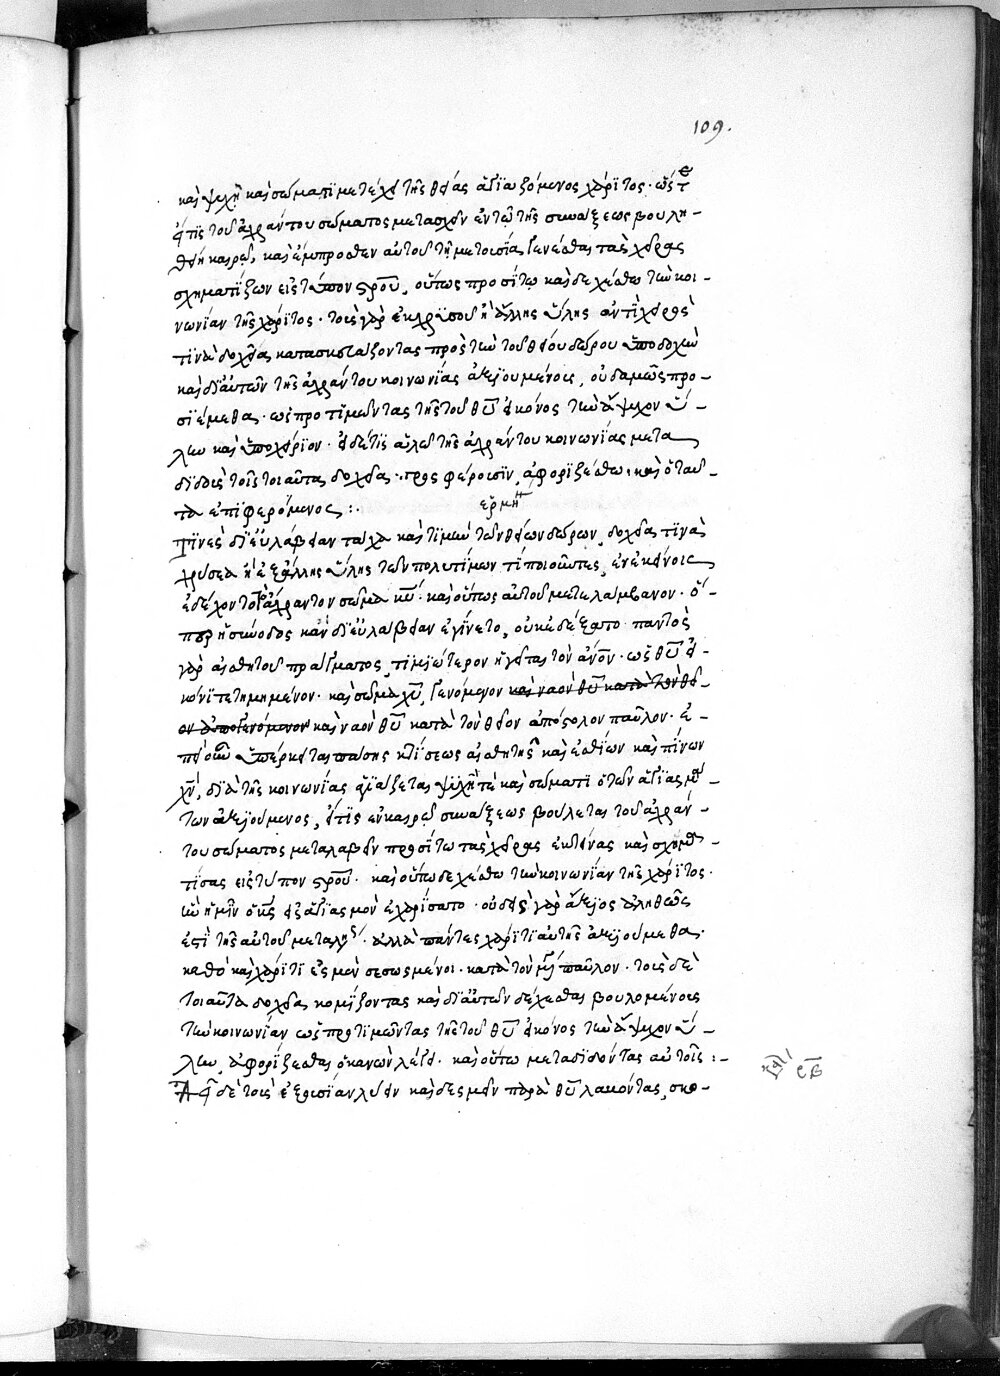 109.
καὶ ψυχῆ καὶ σώματι μετέχει τῆς θείας ἁγιαζόμενος χάριτος. ὥστε
εἴ τις τοῦ ἀχράντου σώματος μετασχεῖν ἐν τῶ τῆς συνάξεως βουλη-
θείη καιρῶ, καὶ ἔμπροσθεν αὐτοῦ τῆ μετουσία γενέσθαι τὰς χεῖρας
σχηματίζων εἰς τύπον σταυροῦ, οὕτως προσίτω καὶ δεχέσθω τὴν κοι-
νωνίαν τῆς χάριτος. τοὺς γὰρ ἐκ χρυσοῦ ἢ ἄλλης ὕλης ἀντὶ χειρὸς
τινὰ δοχεῖα κατασκευάζοντας πρὸς τὴν τοῦ θείου δώρου ὑποδοχὴν
καὶ δι' αὐτῶν τῆς ἀχράντου κοινωνίας ἀξιουμένους, οὐδαμῶς προ-
σιέμεθα. ὡς προτιμῶντας τῆς τοῦ θυ εἰκόνος τὴν ἄψυχον ὕ-
λην καὶ ὑποχείριον. εἰ δέ τις ἁλῶ τῆς ἀχράντου κοινωνίας μετα
διδοὺς τοῖς τοιαῦτα δοχεῖα προσφέρουσιν, ἀφοριζέσθω. καὶ ὁ ταῦ-
τα ἐπιφερόμενος :.
ἑρμη
Τινὲς δι' εὐλάβειαν τάχα καὶ τιμὴν τῶν θείων δώρων, δοχεῖα τινὰ
χρυσεα ἢ ἐξ ἄλλης ὕλης τῶν πολυτίμων τι ποιοῦντες, ἐν ἐκείνοις
ἐδέχοντο τὸ ἄχραντον σῶμα κυ. καὶ οὕτως αὐτοῦ μετελάμβανον. ὅ-
περ ἡ σύνοδος κἂν δι' εὐλάβειαν ἐγίνετο, οὐκ ἐδέξατο. παντὸς
γὰρ αἰσθητοῦ πράγματος, τιμιώτερον ἡγεῖται τὸν ἄνον. ὡς θυ εἰ-
κόνι τετημημένον. καὶ σῶμα χυ γενόμενον καὶ ναὸν θυ κατὰ τὸν θεῖ-
ον ἀπογενόμενον καὶ ναὸν θυ κατὰ τὸν θεῖον ἀπόστολον παῦλον. ἐ-
πεὶ οὖν ὑπέρκειται πάσης κτίσεως αἰσθητῆς καὶ ἐσθίων καὶ πίνων
χν, διὰ τῆς κοινωνίας ἁγιάζεται ψυχῆ τὲ καὶ σώματι ὁ τῶν ἁγιασμά-
των ἀξιούμενος, εἴ τις ἐν καιρῶ συνάξεως βούλεται τοῦ ἀχράν-
του σώματος μεταλαβεῖν προσίτω τὰς χεῖρας ἐκτείνας καὶ σχημα-
τίσας εἰς τύπον σταυροῦ. καὶ οὕτω δεχέσθω τὴν κοινωνίαν τῆς χάριτος.
ἐστὶ τῆς αὐτοῦ μεταλήψεως. ἀλλὰ πάντες χάριτι αὐτῆς ἀξιούμεθα.
καθὸ καὶ χάριτι ἐσμὲν σεσωσμένοι. κατὰ τὸν μέγαν παῦλον. τοὺς δὲ
τοιαῦτα δοχεῖα κομίζοντας καὶ δι' αὐτῶν δέχεσθαι βουλομένους
τὴν κοινωνίαν ὡς προτιμῶντας τῆς τοῦ θυ εἰκόνος τὴν ἄψυχον ὕ-
λην, ἀφορίζεσθαι ὁ κανὼν λέγει. καὶ οὕτω μεταδιδόντας αὐτοῖς :-
Δεῖ δὲ τοὺς ἐξουσίαν λύειν καὶ δεσμεῖν παρὰ θυ λαβόντας, σκο-